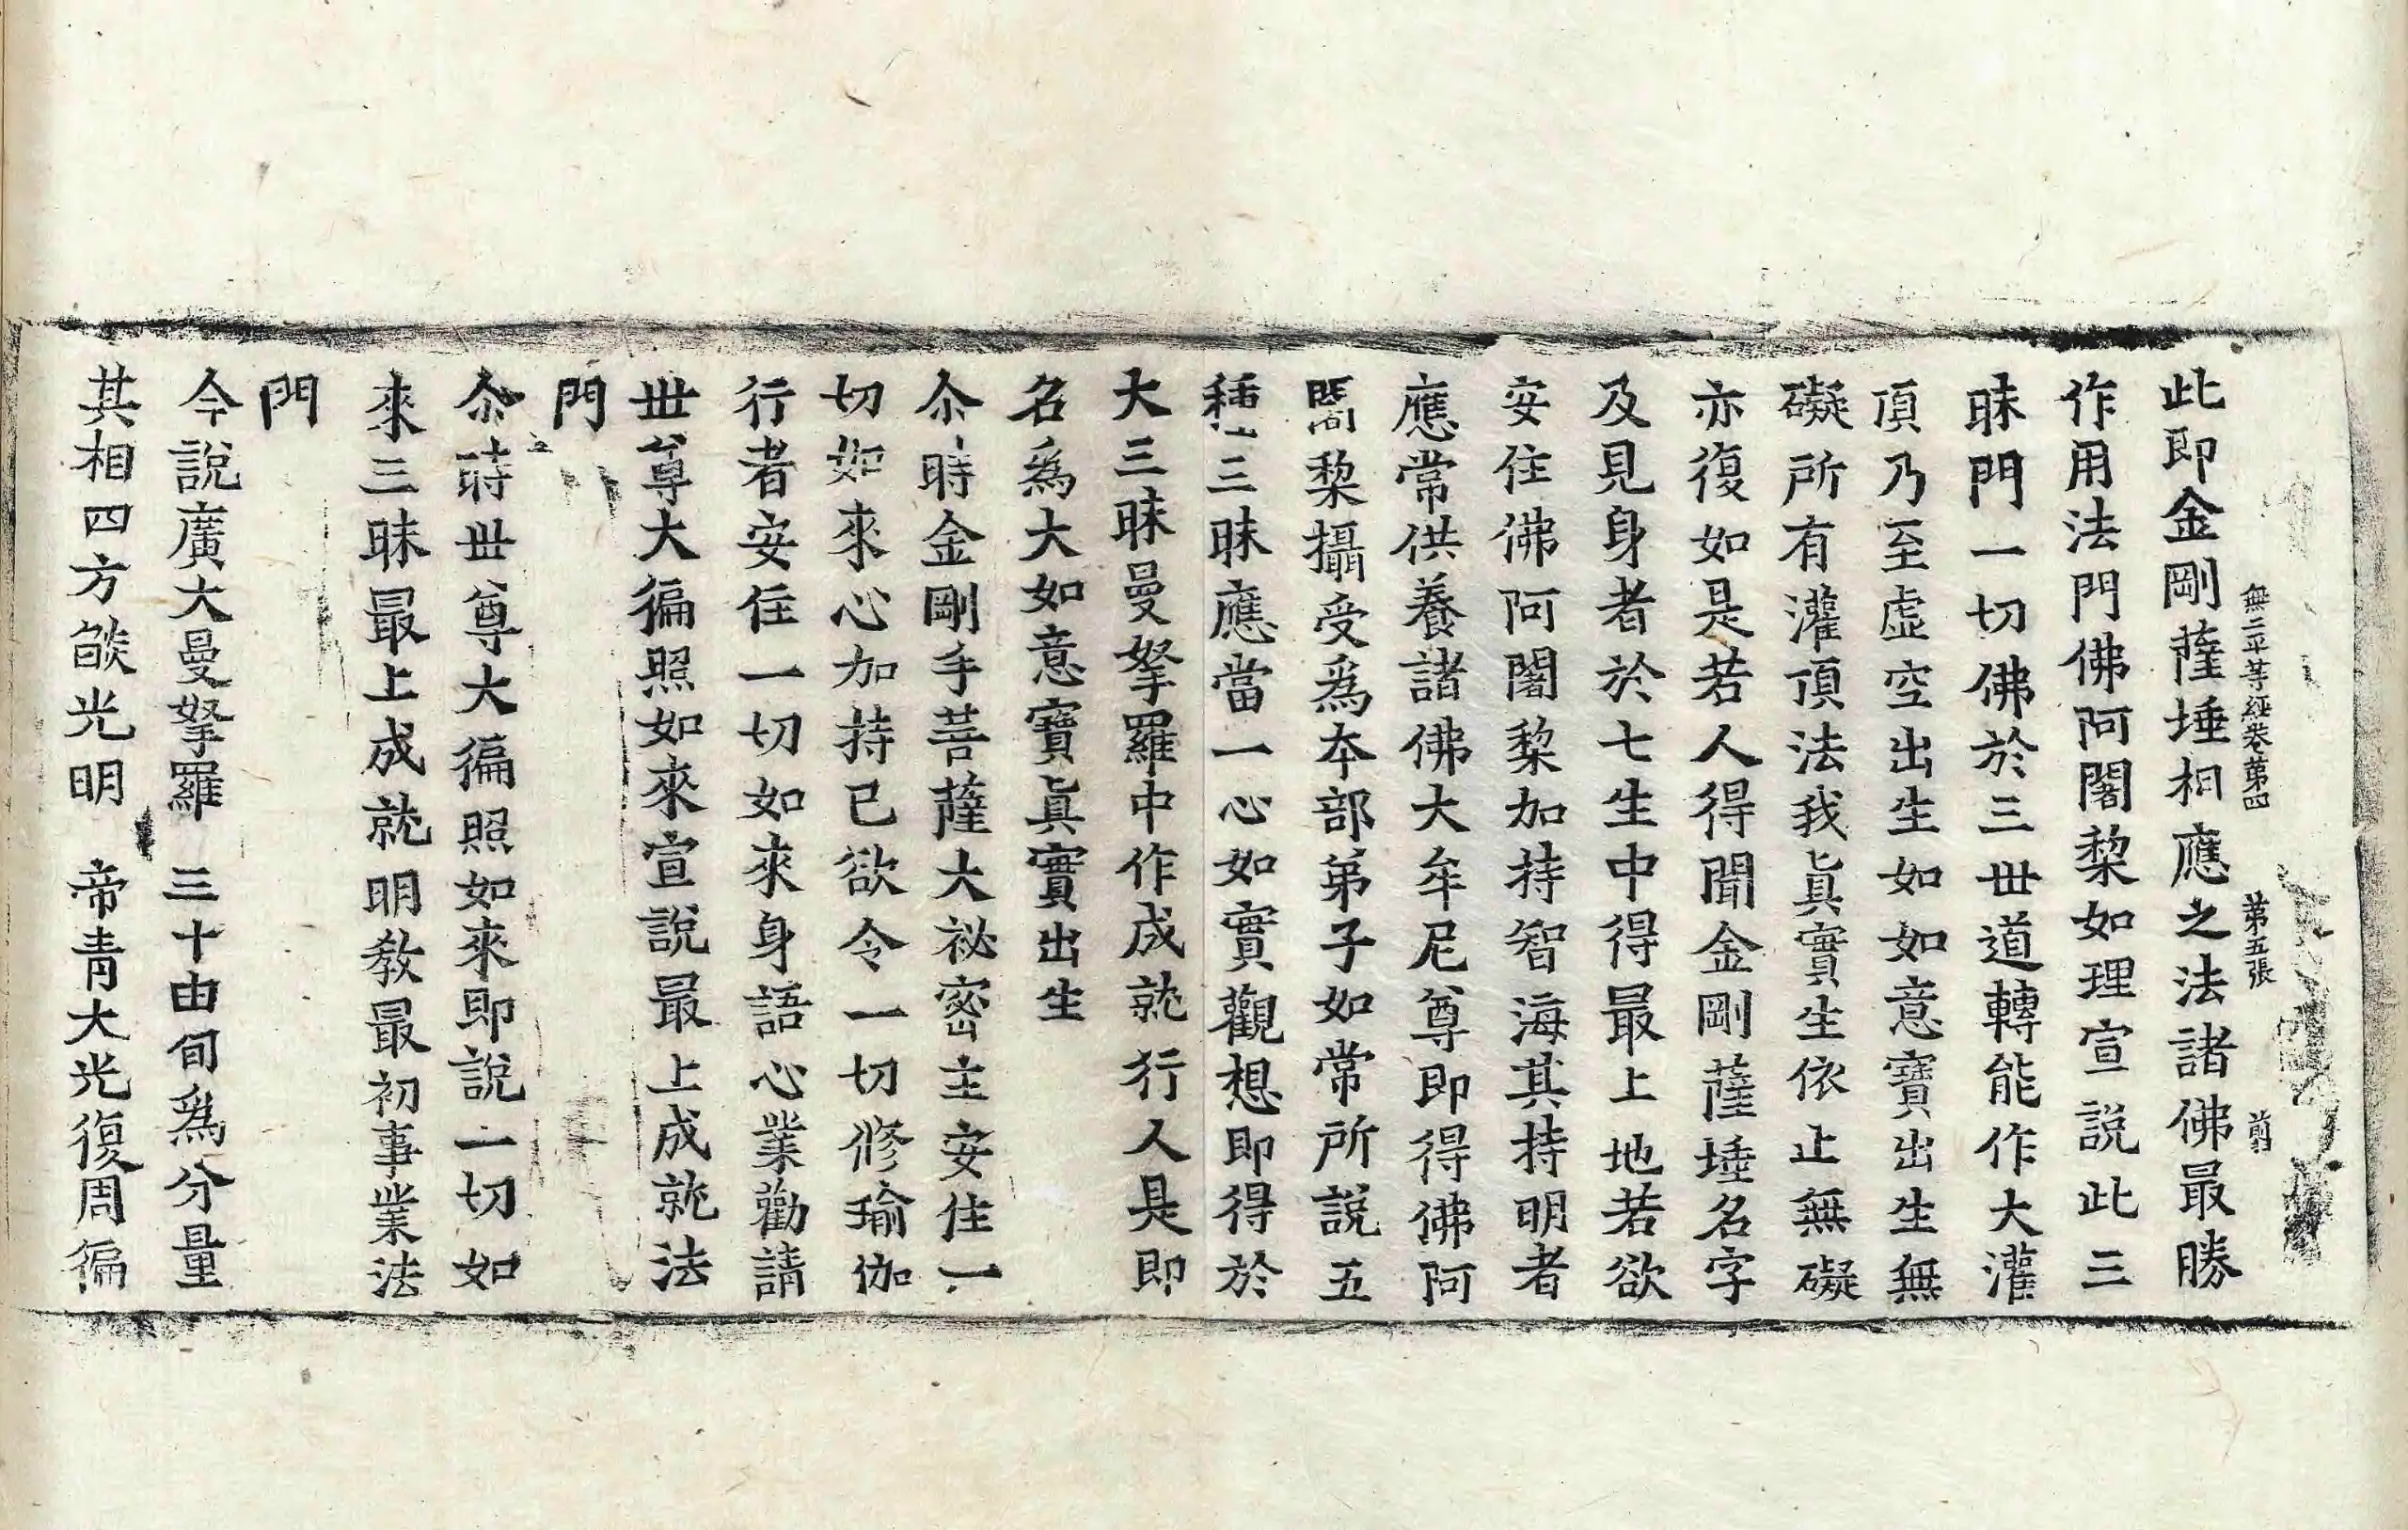 無二平等經卷第四 第五張 前
此即金剛薩埵相應之法諸佛最勝
作用法門佛阿闍棃如理宣說此三
昧門一切佛於三世道轉能作大灌
頂乃至虛空出生如如意寶出生無
礙所有灌頂法我眞實生依止無礙
亦復如是若人得聞金剛薩埵名字
及見身者於七生中得最上地若欲
安住佛阿闍棃加持智海其持明者
應常供養諸佛大牟尼尊即得佛阿
闍棃攝受爲本部弟子如常所說五
種三昧應當一心如實觀想即得於
大三昧曼拏羅中作成就行人是即
名爲大如意寶眞實出生
尒時金剛手菩薩大祕密主安住一
切如來心加持已欲令一切修瑜伽
行者安住一切如來身語心業勸請
世尊大徧照如來宣說最上成就法
門
尒時世尊大徧照如來即說一切如
來三昧最上成就明教最初事業法
門
今說廣大曼拏羅 三十由旬爲分量
其相四方燄光明 帝青大光復周徧